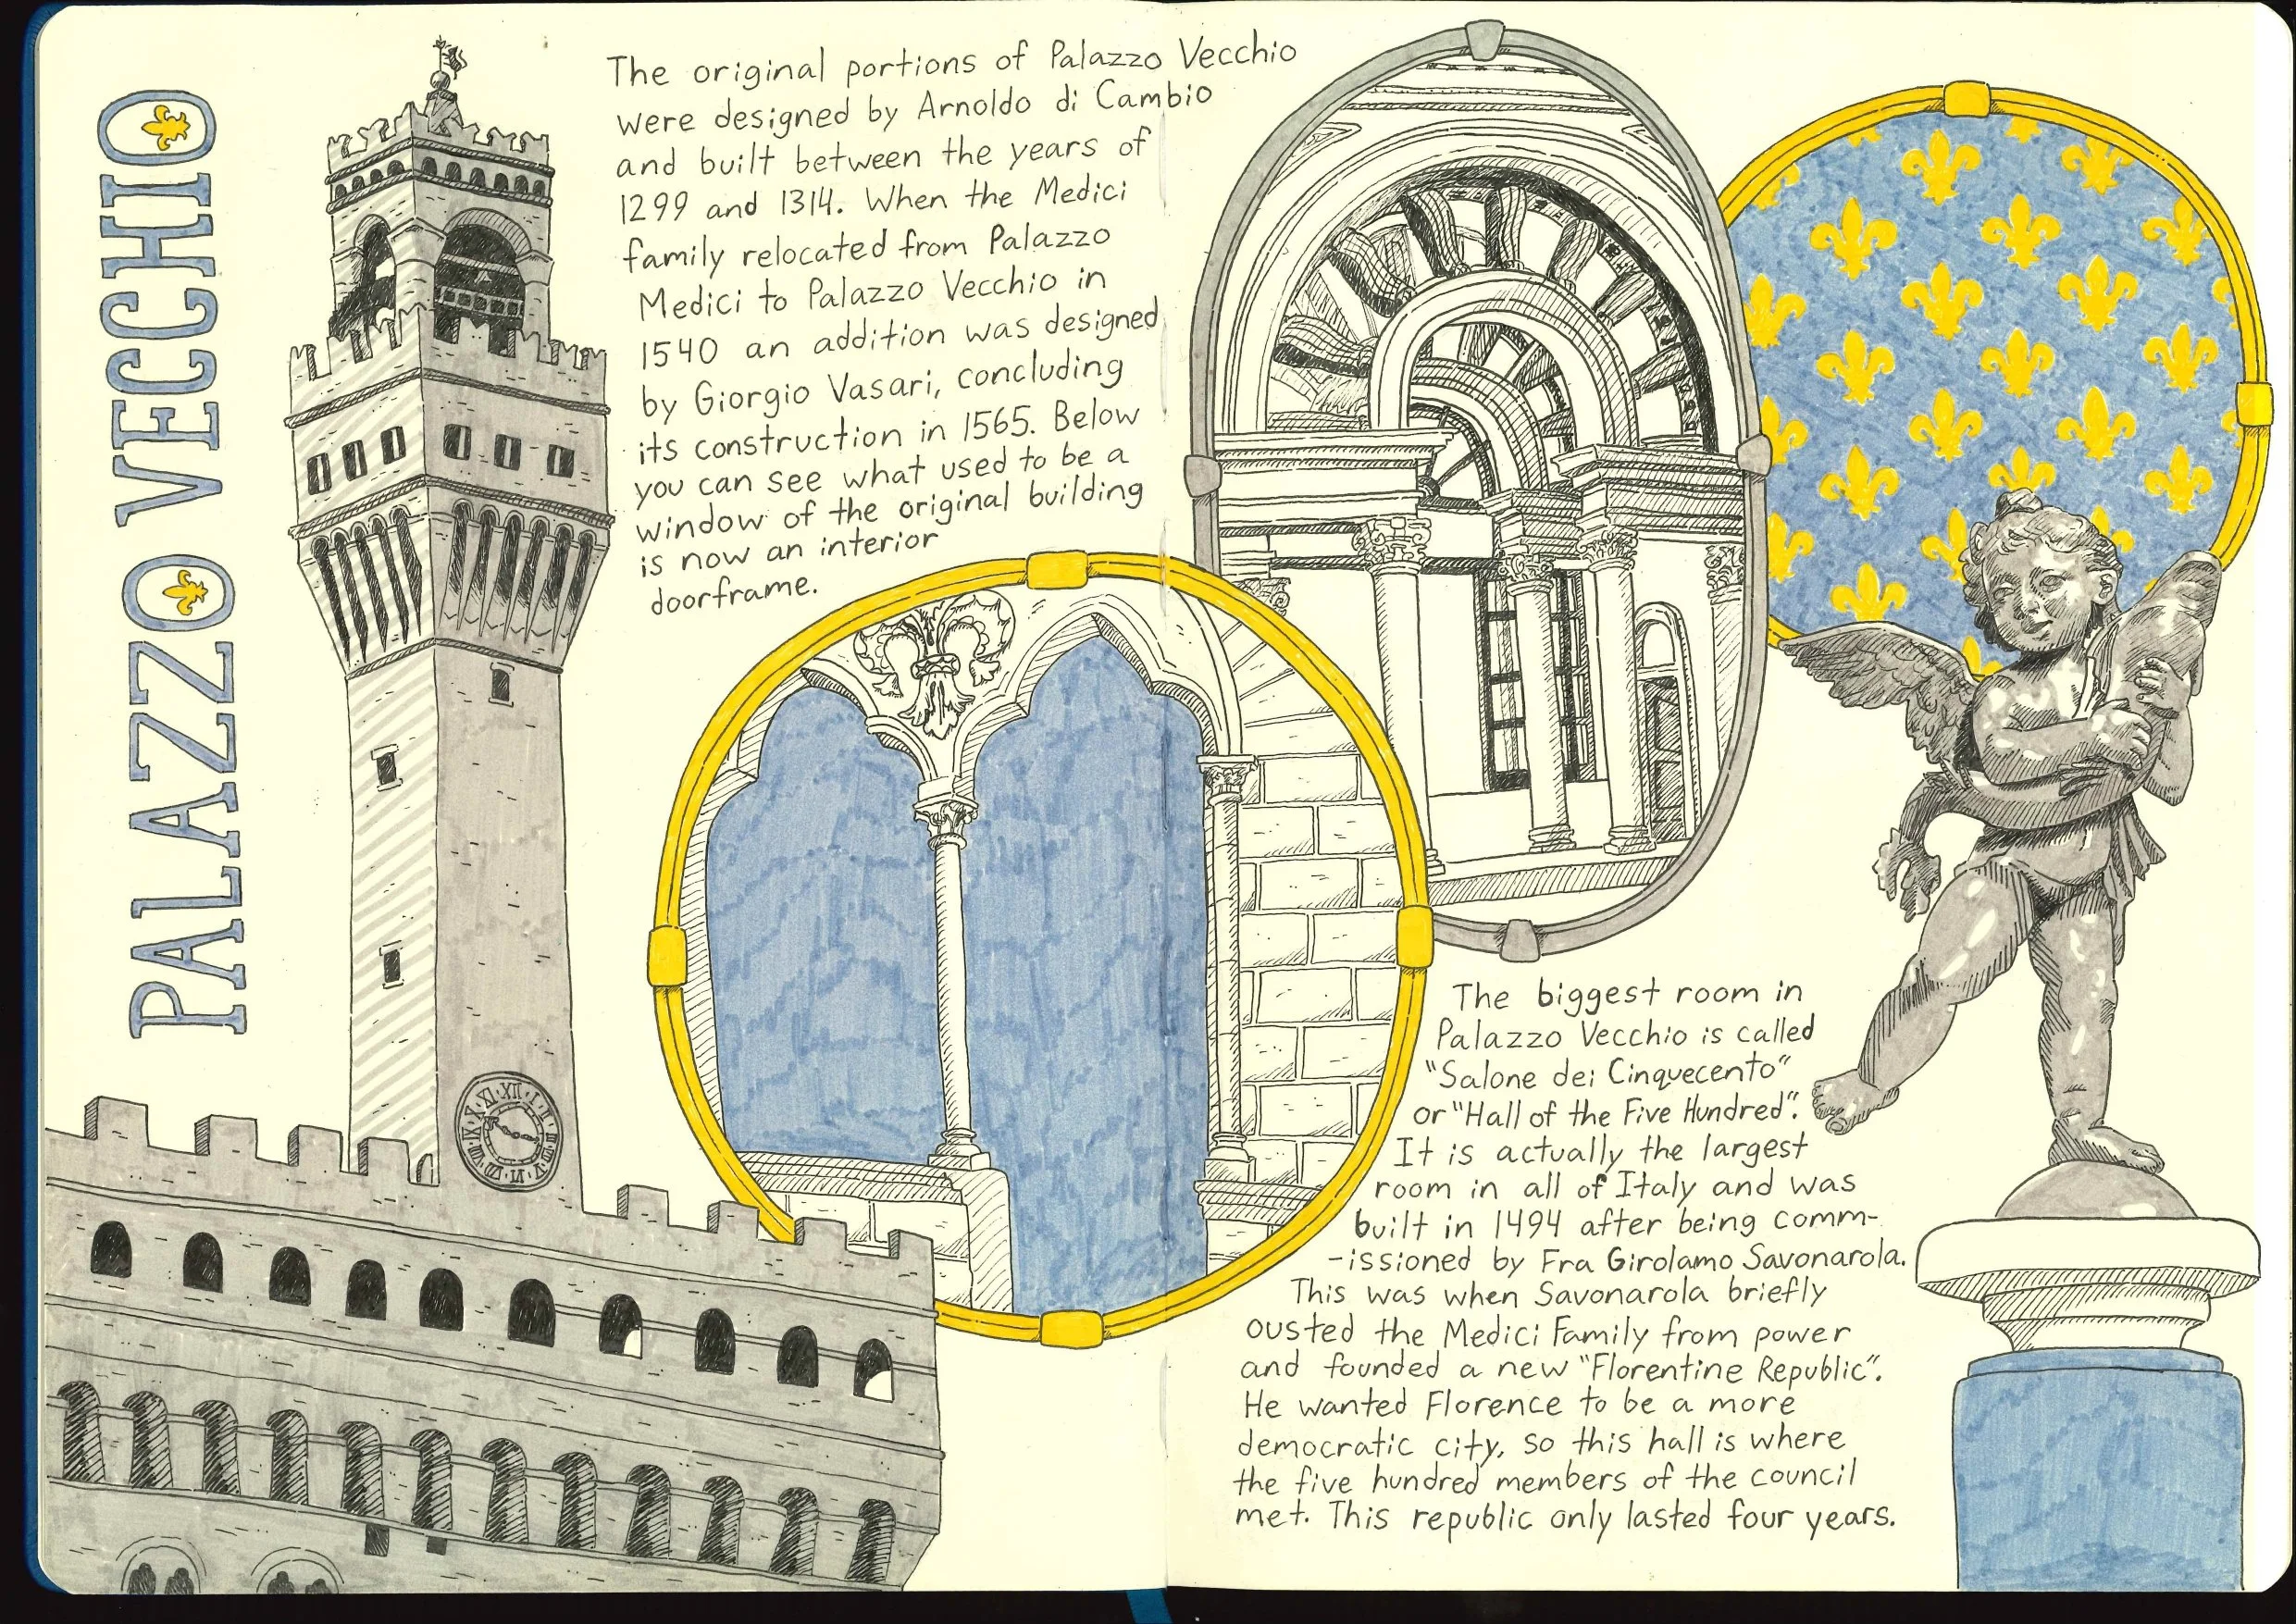 PALAZZO VECCHIO
The original portions of Palazzo Vecchio
were designed by Arnoldo di Cambio
and built between the years of
1299 and 1314. When the Medici
family relocated from Palazzo
Medici to Palazzo Vecchio in
1540 an addition was designed
by Giorgio Vasari, concluding
its construction in 1565. Below
you can see what used to be a
window of the original building
is now an interior
doorframe.
XII I II III IIII V VI VII VIII IX X XI
The biggest room in
Palazzo Vecchio is called
"Salone dei Cinquecento"
or "Hall of the Five Hundred".
It is actually the largest
room in all of Italy and was
built in 1494 after being comm-
-issioned by Fra Girolamo Savonarola.
This was when Savonarola briefly
ousted the Medici Family from power
and founded a new "Florentine Republic".
He wanted Florence to be a more
democratic city, so this hall is where
the five hundred members of the council
met. This republic only lasted four years.